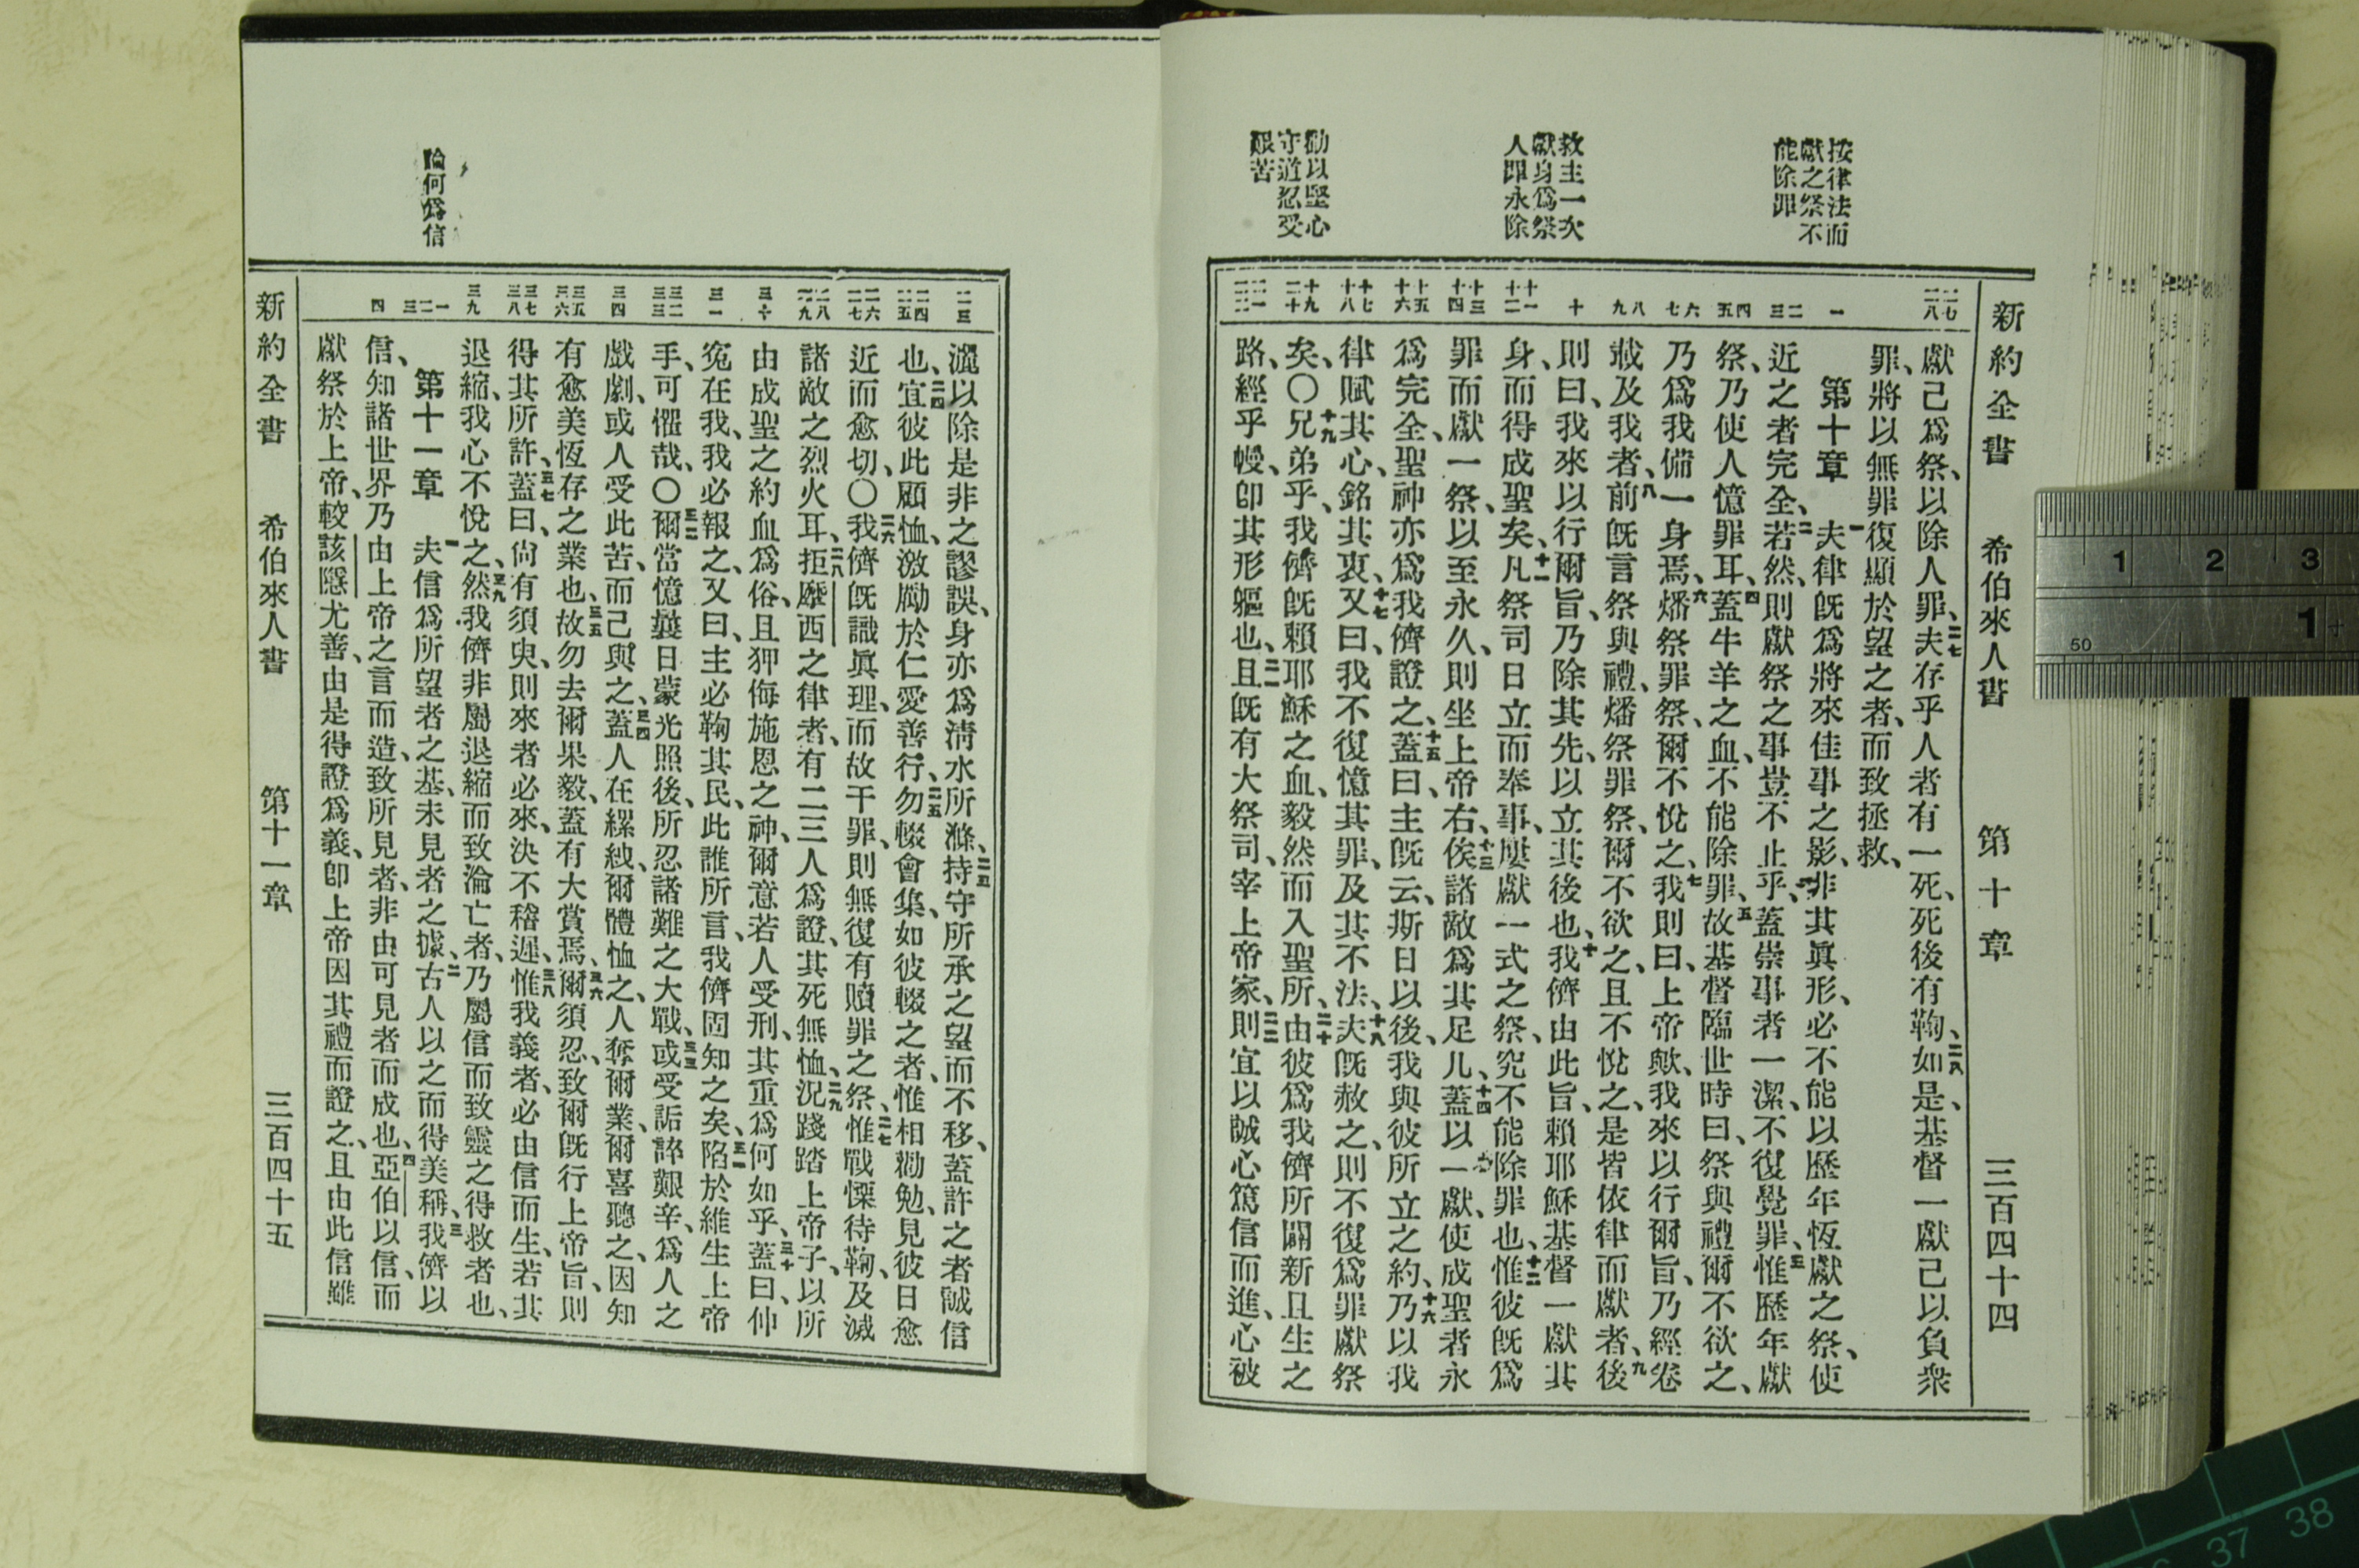 新約全書 希伯來人書 第十章 三百四十四
按律法而
獻之祭不
能除罪
救主一次
獻身爲祭
人即永除
勸以堅心
守道忍受
艱苦
獻己爲祭、以除人罪、二七夫存乎人者有一死、死後有鞫、二八如是、基督一獻己以負衆
罪、將以無罪復顯於望之者、而致拯救、
第十章 一夫律旣爲將來佳事之影、非其眞形、必不能以歷年恆獻之祭、使
近之者完全、二若然、則獻祭之事豈不止乎、蓋崇事者一潔、不復覺罪、三惟歷年獻
祭、乃使人憶罪耳、四蓋牛羊之血、不能除罪、五故基督臨世時曰、祭與禮爾不欲之、
乃爲我備一身焉、六燔祭罪祭、爾不悅之、七我則曰、上帝歟、我來以行爾旨、乃經卷
載及我者、八前旣言祭與禮、燔祭罪祭、爾不欲之、且不悅之、是皆依律而獻者、九後
則曰、我來以行爾旨、乃除其先、以立其後也、十我儕由此旨、賴耶穌基督一獻其
身、而得成聖矣、十一凡祭司日立而奉事、屢獻一式之祭、究不能除罪也、十二惟彼旣爲
罪而獻一祭、以至永久、則坐上帝右、十三俟諸敵爲其足几、十四蓋以一獻、使成聖者永
爲完全、聖神亦爲我儕證之、十五蓋曰、主旣云、斯日以後、我與彼所立之約、十六乃以我
律賦其心、銘其衷、十七又曰、我不復憶其罪、及其不法、十八夫旣赦之、則不復爲罪獻祭
矣、〇十九兄弟乎、我儕旣賴耶穌之血、毅然而入聖所、二十由彼爲我儕所闢新且生之
路、經乎幔、卽其形軀也、二一且旣有大祭司、宰上帝家、二二則宜以誠心篤信而進、心被
二七
二八
一
二
三
四
五
六
七
八
九
十
十一
十二
十三
十四
十五
十六
十七
十八
十九
二十
二一
二二
新約全書 希伯來人書 第十一章 三百四十五
論何爲信
灑以除是非之謬誤、身亦爲淸水所滌、二三持守所承之望而不移、蓋許之者誠信
也、二四宜彼此顧恤、激勵於仁愛善行、二五勿輟會集、如彼輟之者、惟相勸勉、見彼日愈
近而愈切、〇二六我儕旣識眞理、而故干罪、則無復有贖罪之祭、二七惟戰慄待鞫、及滅
諸敵之烈火耳、二八拒摩西之律者、有二三人爲證、其死無恤、二九況踐踏上帝子、以所
由成聖之約血爲俗、且狎侮施恩之神、爾意若人受刑、其重爲何如乎、三十蓋曰、仲
寃在我、我必報之、又曰、主必鞫其民、此誰所言、我儕固知之矣、三一陷於維生上帝
手、可懼哉、〇三二爾當憶曩日蒙光照後、所忍諸難之大戰、三三或受詬誶艱辛、爲人之
戲劇、或人受此苦、而己與之、三四蓋人在縲絏、爾體恤之、人奪爾業、爾喜聽之、因知
有愈美恆存之業也、三五故勿去爾果毅、蓋有大賞焉、三六爾須忍、致爾旣行上帝旨、則
得其所許、三七蓋曰、尙有須臾、則來者必來、決不稽遲、三八惟我義者、必由信而生、若其
退縮、我心不悅之、三九然我儕非屬退縮而致淪亡者、乃屬信而致靈之得救者也、
第十一章 一夫信爲所望者之基、未見者之據、二古人以之而得美稱、三我儕以
信、知諸世界乃由上帝之言而造、致所見者、非由可見者而成也、四亞伯以信、而
獻祭於上帝、較該隱尤善、由是得證爲義、卽上帝因其禮而證之、且由此信雖
二三
二四
二五
二六
二七
二八
二九
三十
三一
三二
三三
三四
三五
三六
三七
三八
三九
一
二
三
四
1 2 3
50
1
37 38